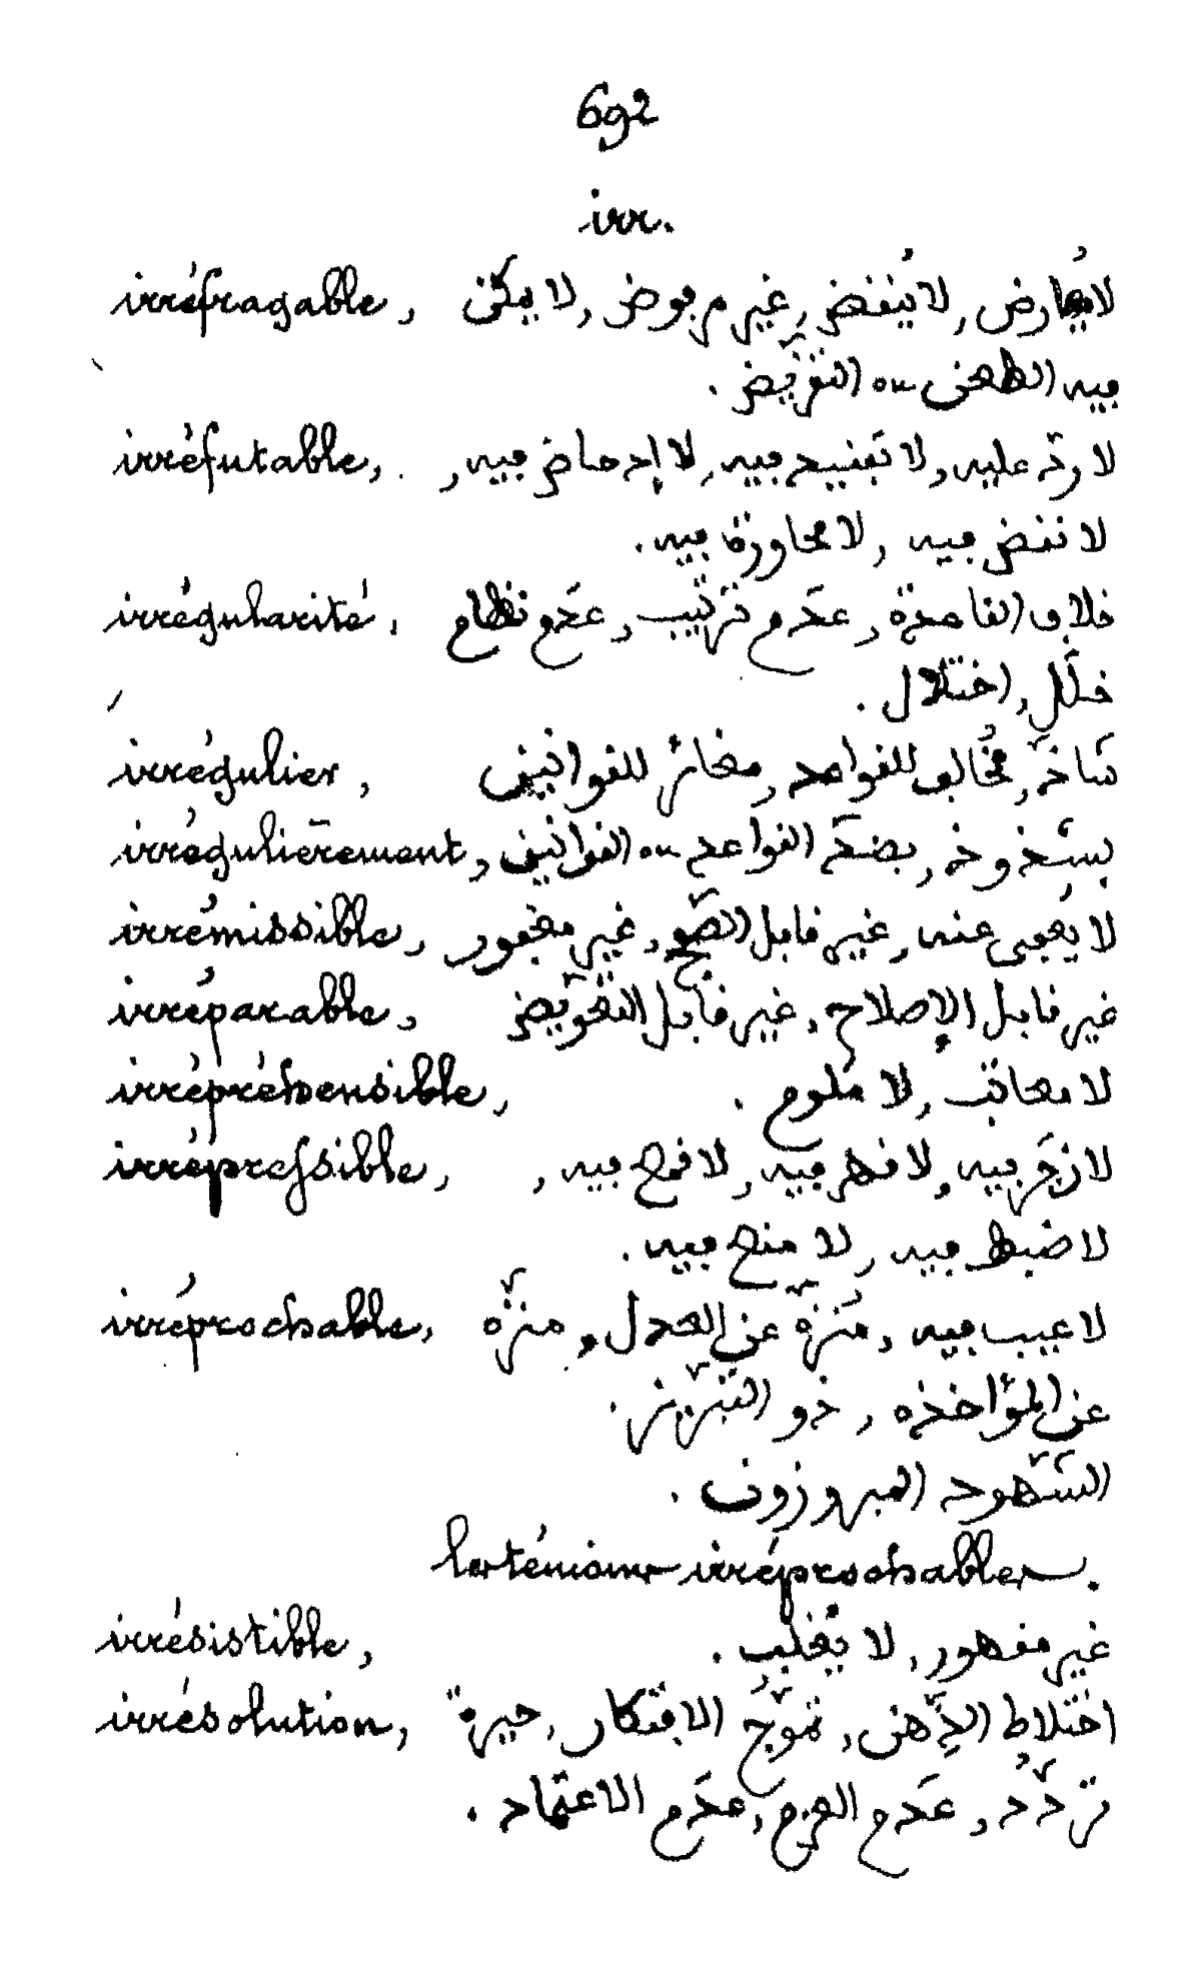 692
irr.
irréfragable, لا يُعارض, لا يُنقض, غير مرفوض, لا يمكن
فيه الطعن ou التقريض.
irréfutable, لا ردّ عليه, لا تفنيد فيه, لا إدحاض فيه,
لا نقض فيه, لا محاورة فيه.
irrégularité, خلاف القاعدة, عدَم ترتيب, عدَم نظام
خلَل, اختلال.
irrégulier, شاذّ, مُخالف للقواعد, مغائر للقوانين
irrégulièrement, بشذوذ, بضدّ القواعد ou القوانين,
irrémissible, لا يُعفى عنه, غير قابل الصّفح, غير مغفور,
irréparable, غير قابل الإصلاح, غير قابل التعويض
irrépréhensible, لا معاتب, لا ملوم.
irrépressible, لا زجَر فيه, لا قهر فيه, لا قمع فيه,
لا ضبط فيه, لا منع فيه.
irréprochable, لا عيب فيه, مُنزّه عن العدل, منزّه
عن المؤاخذه, ذو التبريز.
الشّهود المبروزون.
les témoins irréprochables.
irrésistible, غير مقهور, لا يُغلب.
irrésolution, اختلاط الذّهن, تموّج الافتكار, حيرة
تردّد, عدَم العزم, عدَم الاعتماد.